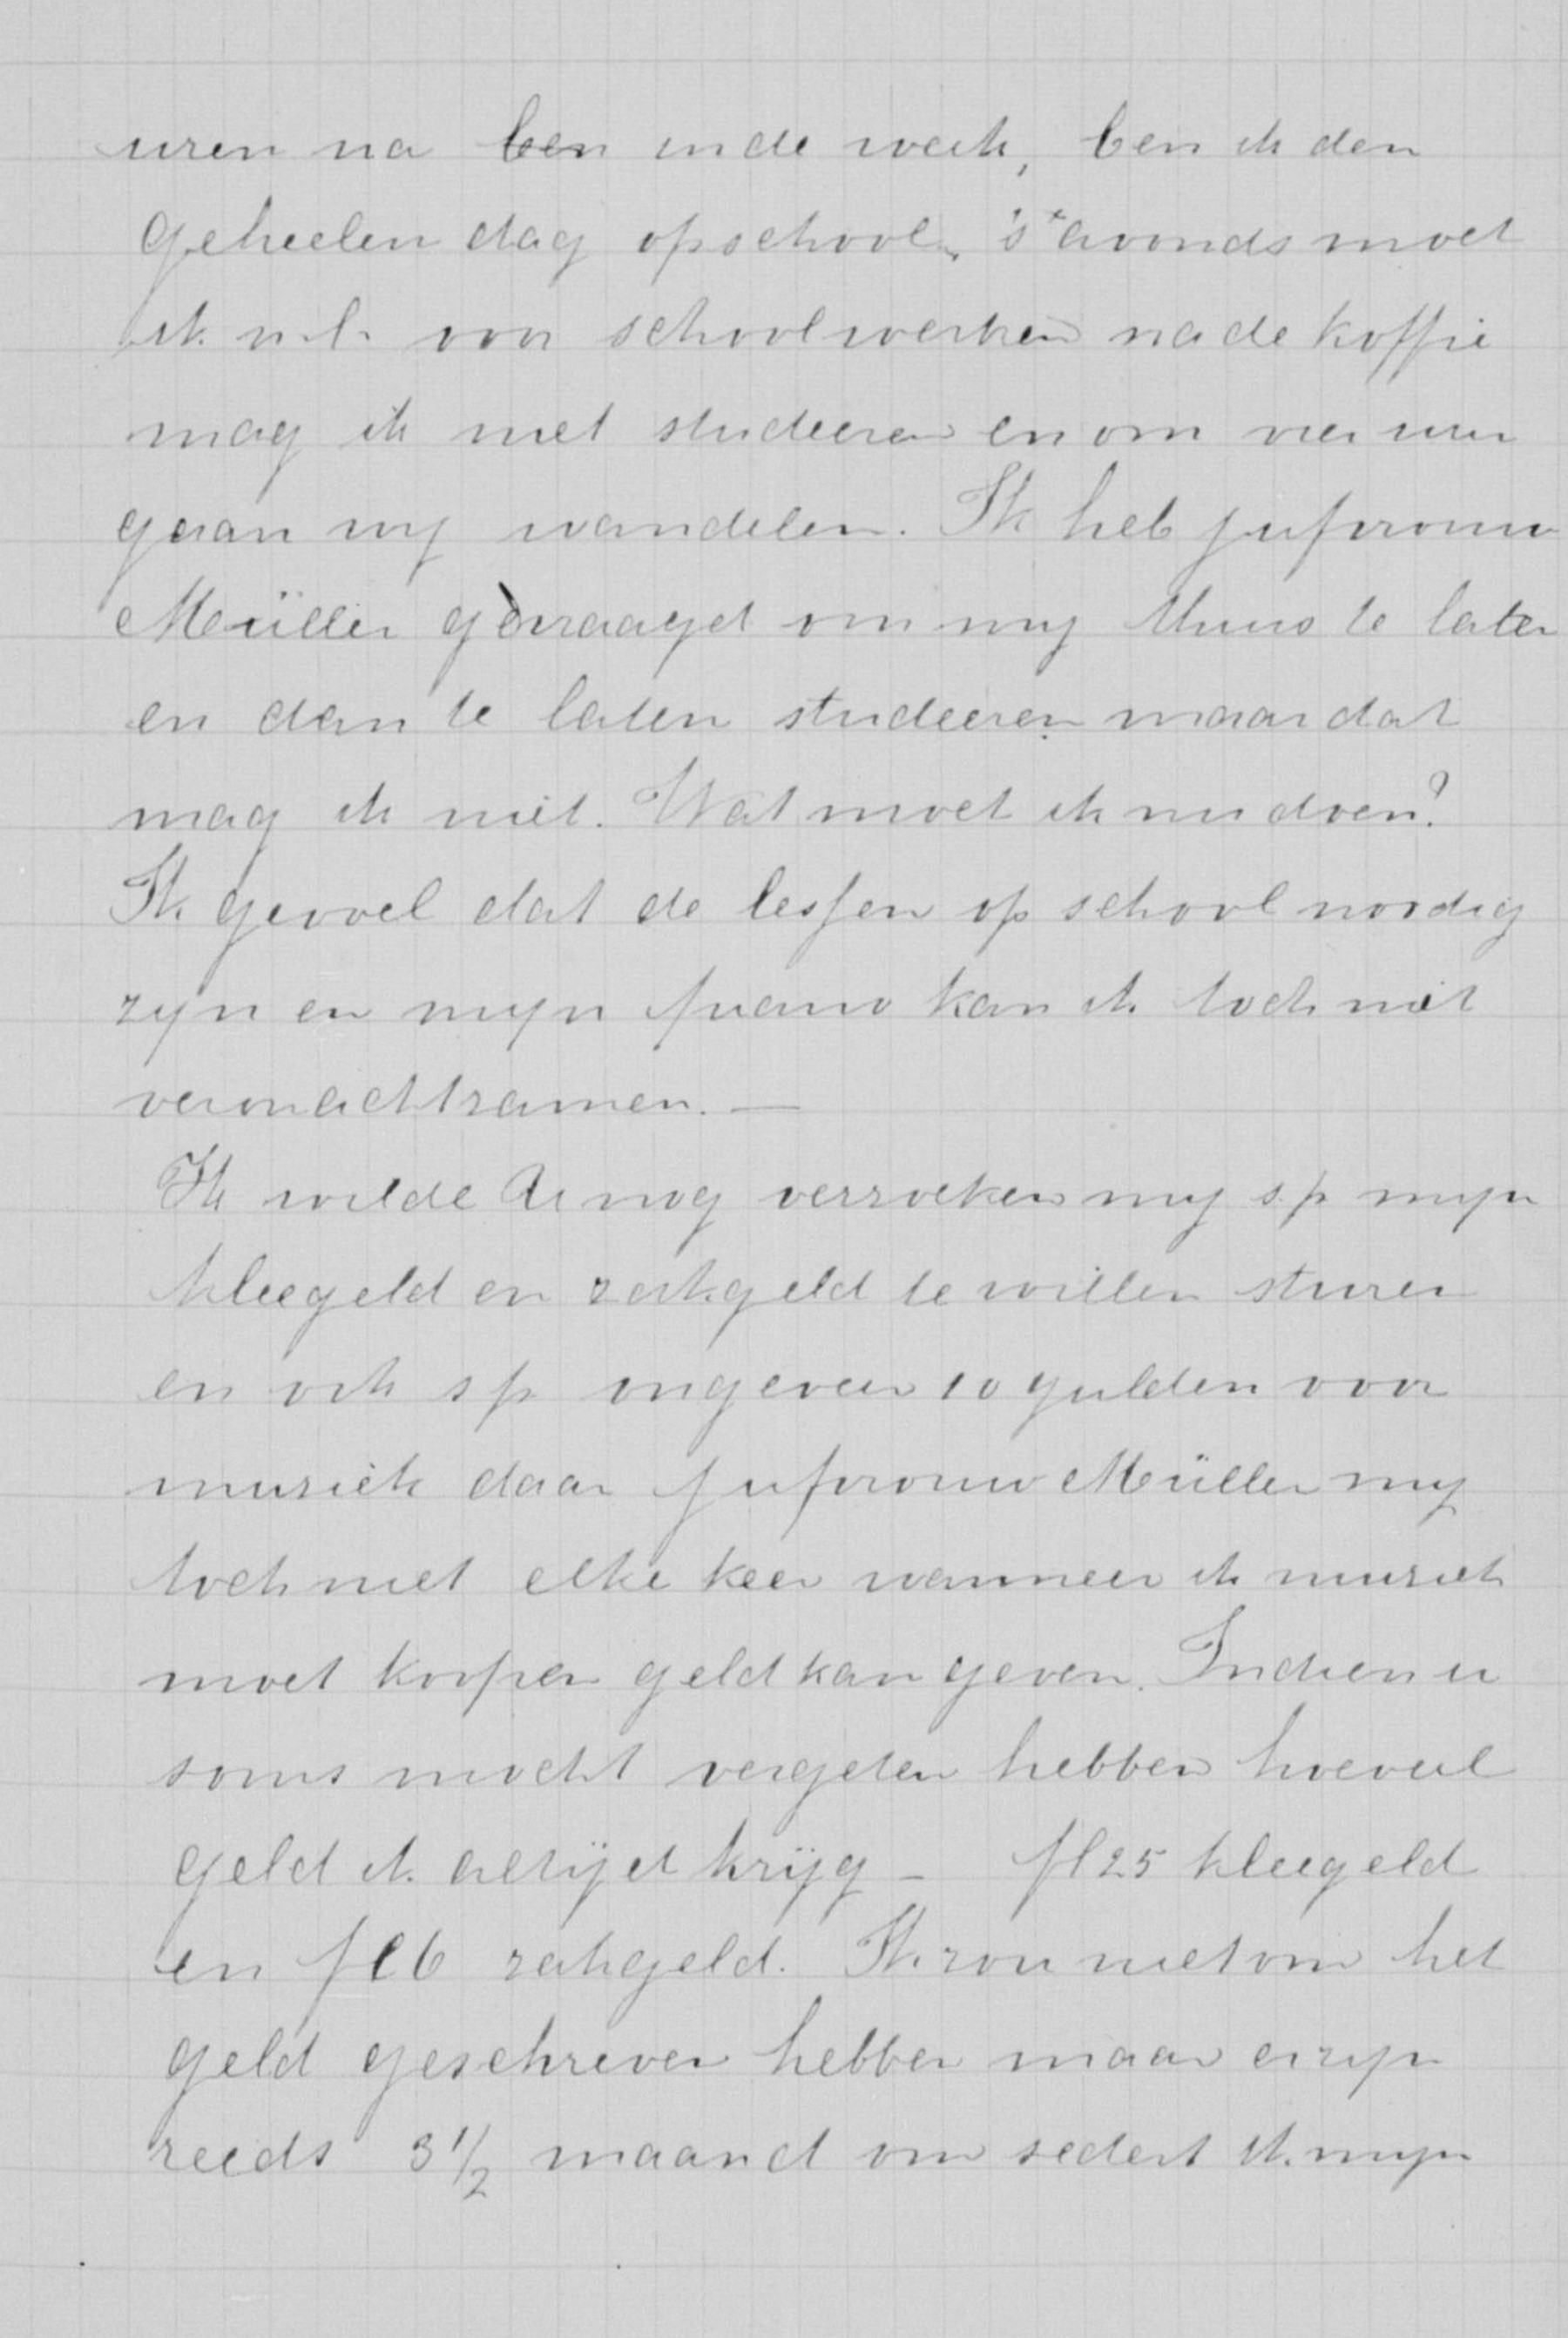 uren na ben in de week, ben ik den
geheelen dag op school, 's avonds moet
ik n.l. voor school werken na de koffie
mag ik niet studeeren en om vier uur
gaan wy wandelen. Ik heb jufvrouw
Müller gevraagd om my thuis te laten
en dan te laten studeeren maar dat
mag ik niet. Wat moet ik nu doen?
Ik gevoel dat de lessen op school noodig
zyn en myn piano kan ik toch niet
veronachtzamen. —
Ik wilde U nog verzoeken my s.p. myn
kleegeld en zakgeld te willen sturen
en ook s.p. ongeveer 10 gulden voor
muziek daar jufvrouw Müller my
toch niet elke keer wanneer ik muziek
moet koopen geld kan geven. Indien u
soms mocht vergeten hebben hoeveel
geld ik altijd krijg – fl 25 kleegeld
en fl 6 zakgeld. Ik zou niet om het
geld geschreven hebben maar er zyn
reeds 3 1/2 maand om sedert ik myn